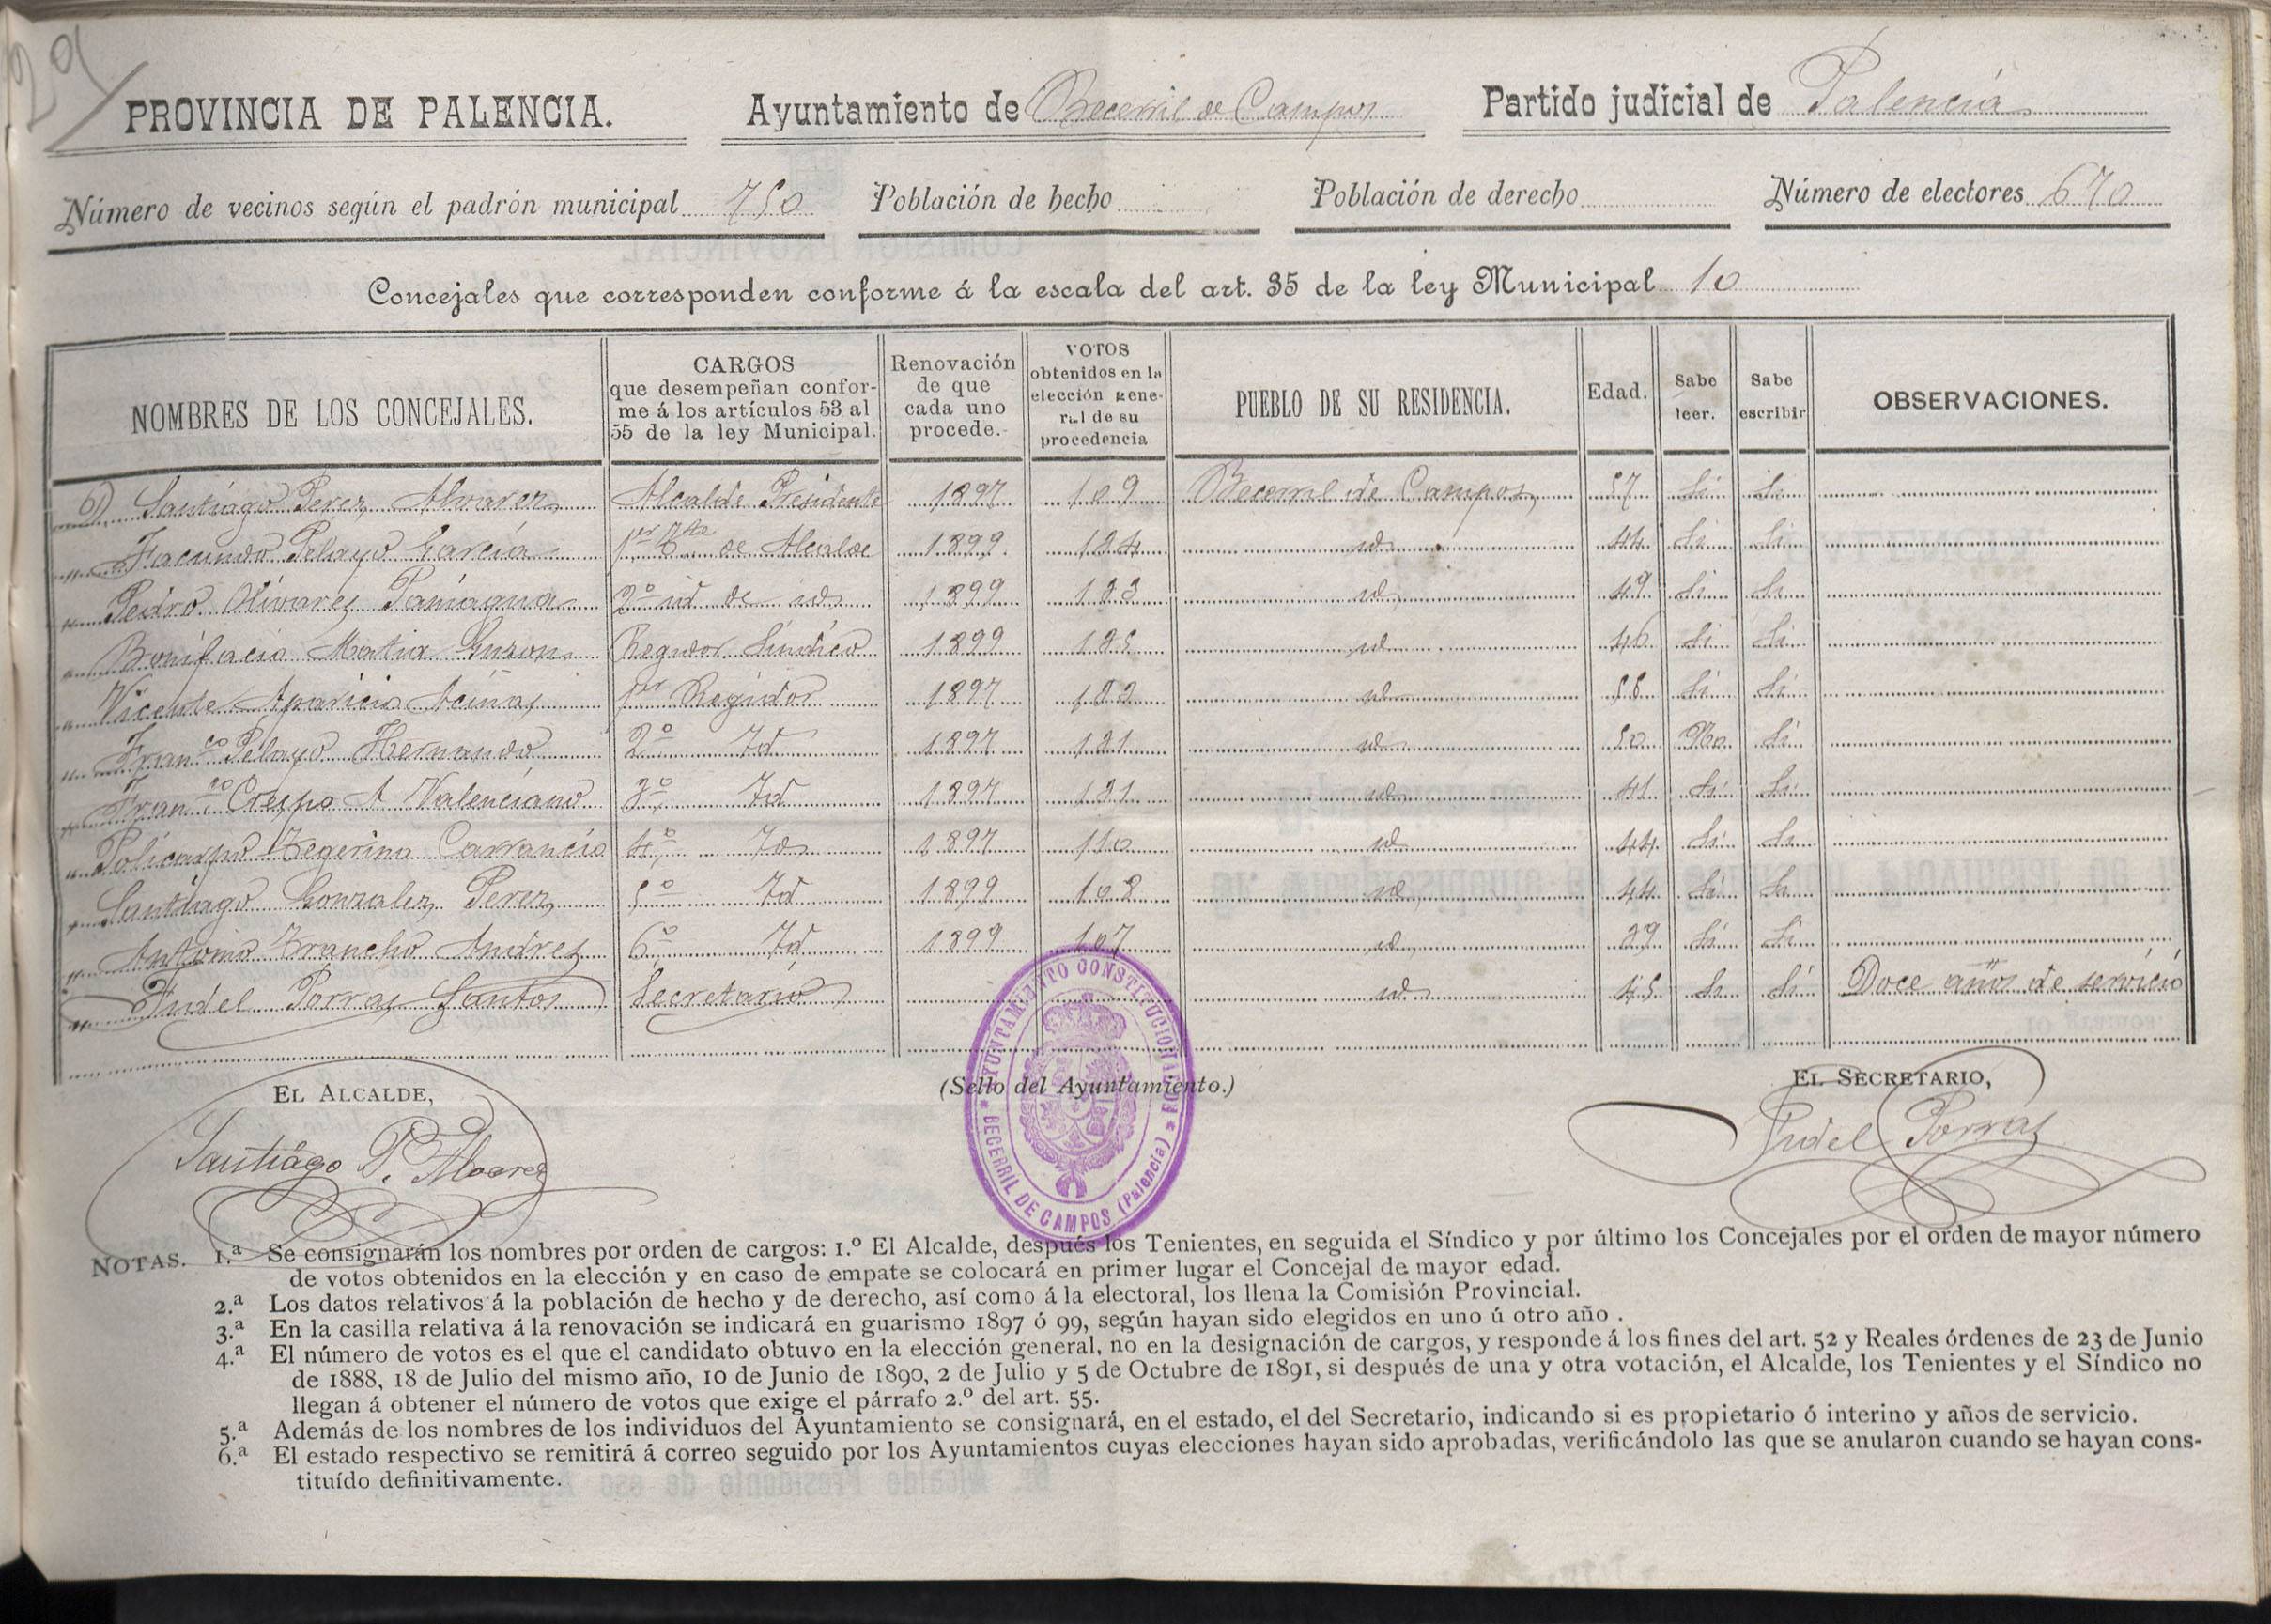 29
PROVINCIA DE PALENCIA. Ayuntamiento de Becerril de Campos Partido judicial de Palencia
Número de vecinos según el padrón municipal 750 Población de hecho Población de derecho Número de electores 670
Concejales que corresponden conforme á la escala del art. 35 de la ley Municipal 10
NOMBRES DE LOS CONCEJALES. CARGOS que desempeñan confor-me á los artículos 53 al 55 de la ley Municipal. Renovación de que cada uno procede. VOTOS obtenidos en la elección gene-ral de su procedencia PUEBLO DE SU RESIDENCIA. Edad. Sabe leer. Sabe escribir OBSERVACIONES.
Santiago Perez Alvarez Alcalde Presidente 1897 109 Becerril de Campos 57 Si Si
Facundo Pelayo Garcia 1er Tte de Alcalde 1899 124 id 44 Si Si
Pedro Olivares Paniagua 2º id de id 1899 123 id 49 Si Si
Bonifacio Matia Guzon Regidor Síndico 1899 125 id 46 Si Si
Vicente Aparicio Aciñas 1er Regidor 1897 122 id Si Si
Franco Pelayo Hernando 2º Id 1897 121 id 50 No Si
Franco Crespo A Valenciano 3º Id 1897 121 id 41 Si Si
Policarpo Tegerina Carrancio 4º Id 1897 110 id 44 Si Si
Santiago Gonzalez Perez 5º Id 1899 108 id 44 Si Si
Antonio Trancho Andres 6º Id 1899 107 id 39 Si Si
Fidel Porras Santos Secretario id 45 Si Si Doce años de servicio
EL ALCALDE, (Sello del Ayuntamiento.) EL SECRETARIO,
Santiago P. Alvarez Fidel Porras
AYUNTAMIENTO CONSTITUCIONAL DE * BECERRIL DE CAMPOS (Palencia) *
NOTAS. 1.ª Se consignarán los nombres por orden de cargos: 1.º El Alcalde, después los Tenientes, en seguida el Síndico y por último los Concejales por el orden de mayor número
de votos obtenidos en la elección y en caso de empate se colocará en primer lugar el Concejal de mayor edad.
2.ª Los datos relativos á la población de hecho y de derecho, así como á la electoral, los llena la Comisión Provincial.
3.ª En la casilla relativa á la renovación se indicará en guarismo 1897 ó 99, según hayan sido elegidos en uno ú otro año .
4.ª El número de votos es el que el candidato obtuvo en la elección general, no en la designación de cargos, y responde á los fines del art. 52 y Reales órdenes de 23 de Junio
de 1888, 18 de Julio del mismo año, 10 de Junio de 1890, 2 de Julio y 5 de Octubre de 1891, si después de una y otra votación, el Alcalde, los Tenientes y el Síndico no
llegan á obtener el número de votos que exige el párrafo 2.º del art. 55.
5.ª Además de los nombres de los individuos del Ayuntamiento se consignará, en el estado, el del Secretario, indicando si es propietario ó interino y años de servicio.
6.ª El estado respectivo se remitirá á correo seguido por los Ayuntamientos cuyas elecciones hayan sido aprobadas, verificándolo las que se anularon cuando se hayan cons-
tituído definitivamente.